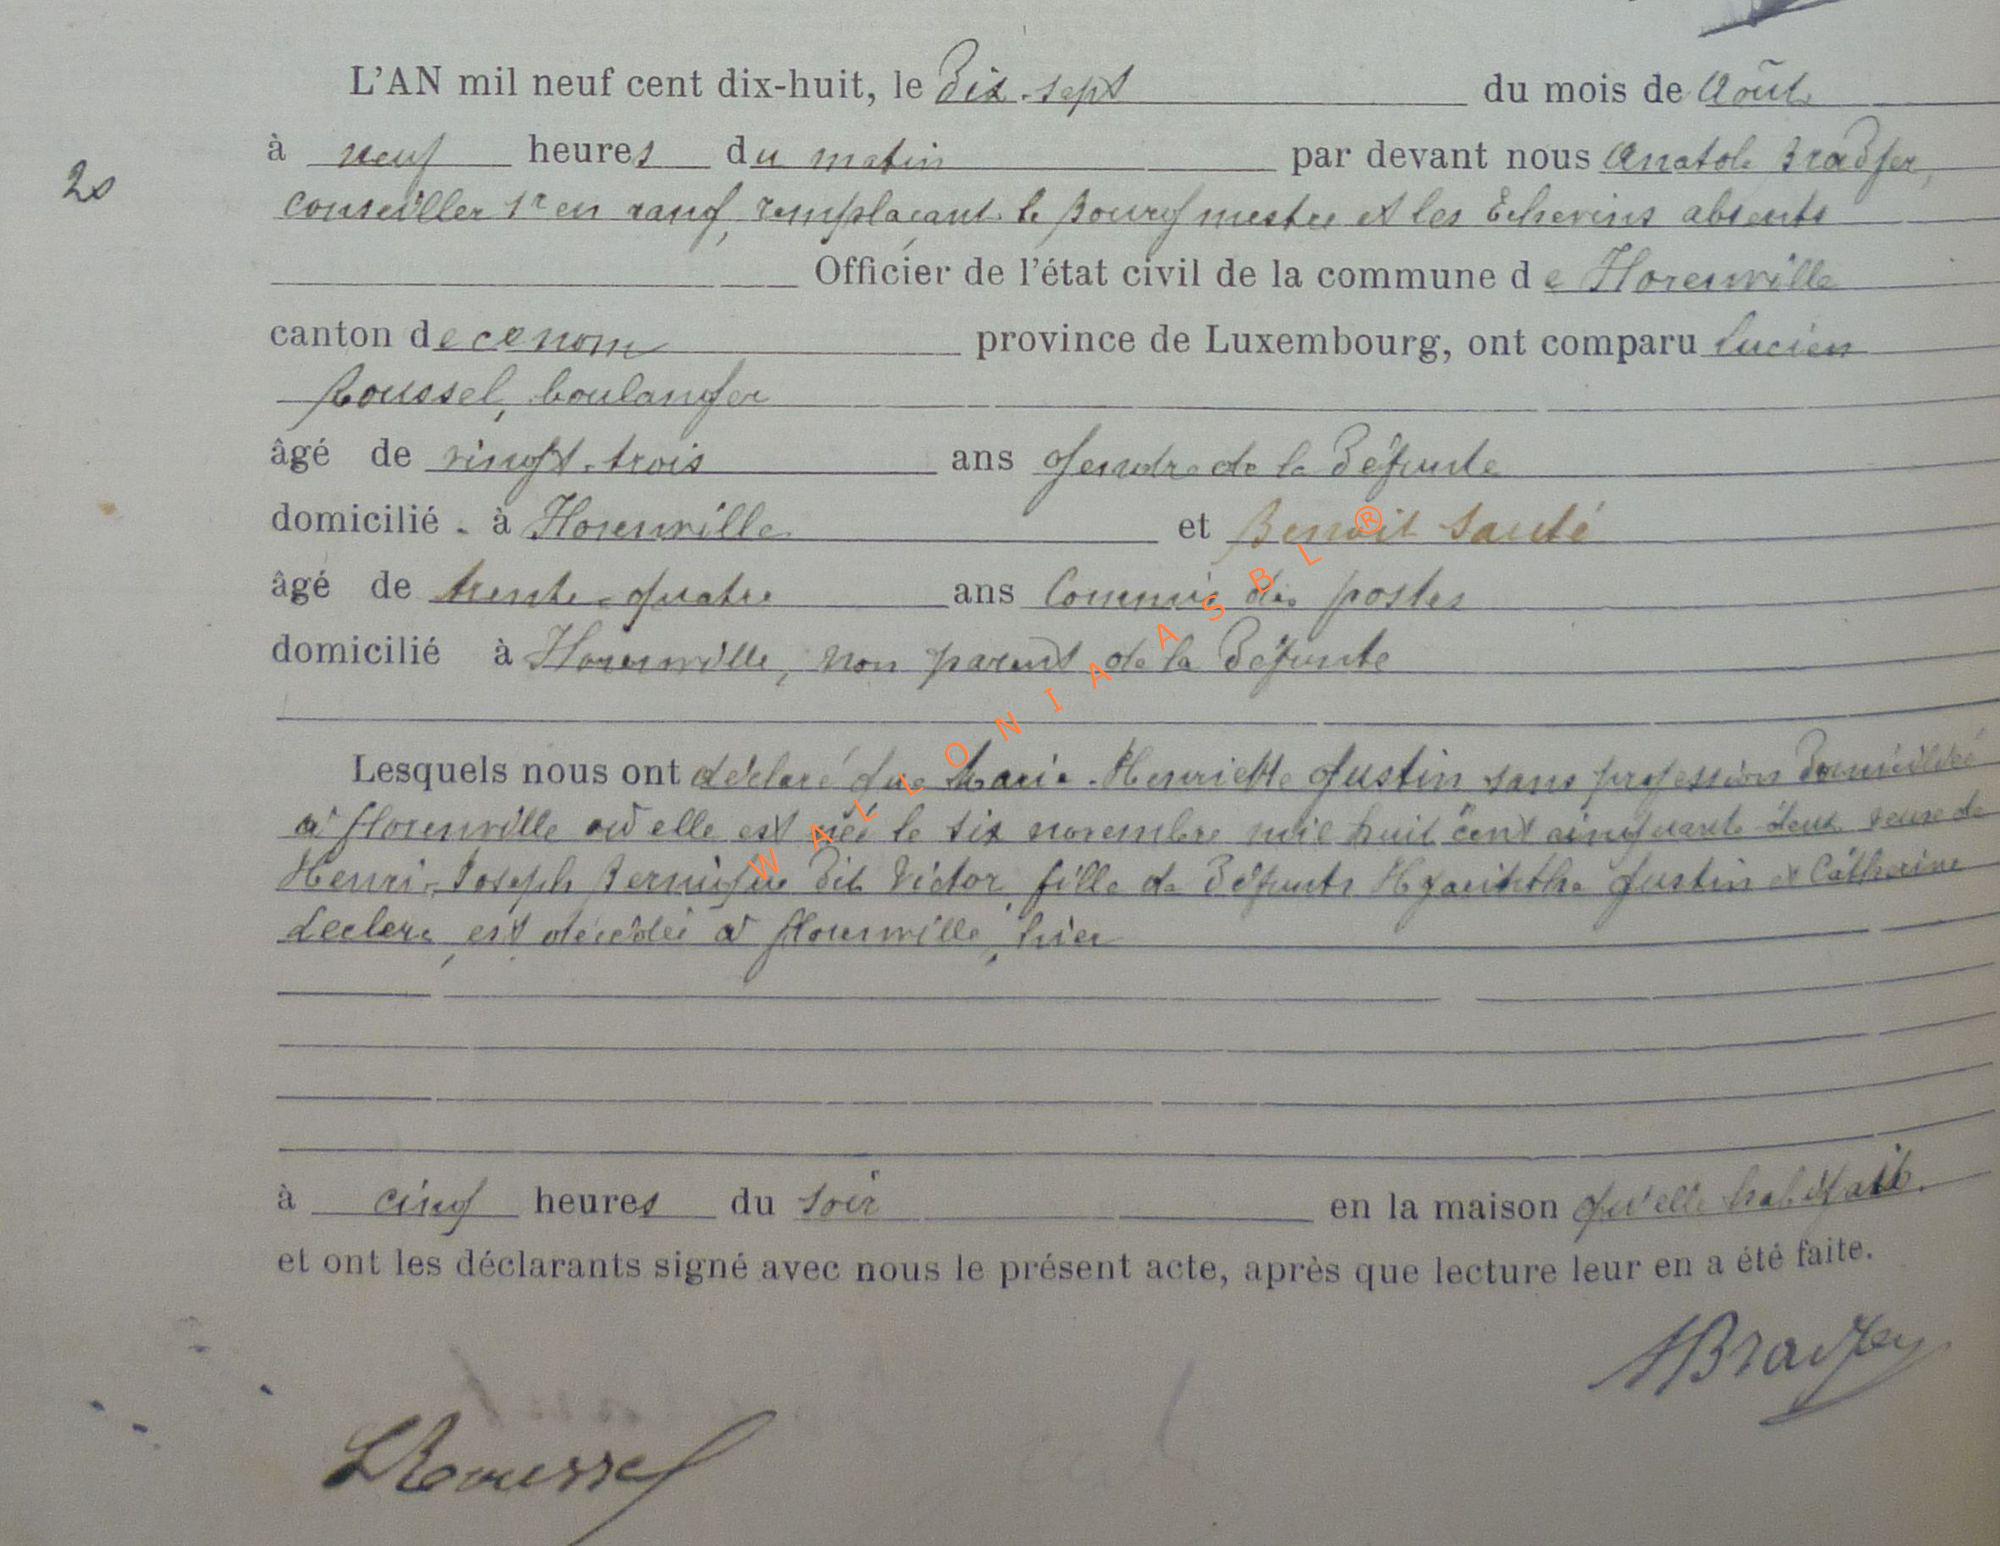 L'AN mil neuf cent dix-huit, le Dix-sept du mois de Août
à neuf heures du matin par devant nous Anatole Bradfer,
20
conseiller 1r en rang, remplaçant le Bourgmestre et les Echevins absents
Officier de l'état civil de la commune de Florenville
canton de ce nom province de Luxembourg, ont comparu Lucien
Roussel, boulanger
âgé de vingt-trois ans gendre de la Défunte
domicilié à Florenville et Benoit Sauté
âgé de trente-quatre ans Commis des postes
domicilié à Florenville, non parent de la Défunte
Lesquels nous ont déclaré que Marie-Henriette Justin sans profession Domiciliée
à Florenville où elle est née le six novembre mil huit cent cinquante deux veuve de
Henri-Joseph Dit Victor, fille de Défunts Hyacinthe Justin et Catherine
Leclerc, est décédée à Florenville, hier
à cinq heures du soir en la maison qu'elle habitait.
et ont les déclarants signé avec nous le présent acte, après que lecture leur en a été faite.
ABradfer
LRoussel
WALLONIA ASBL ®